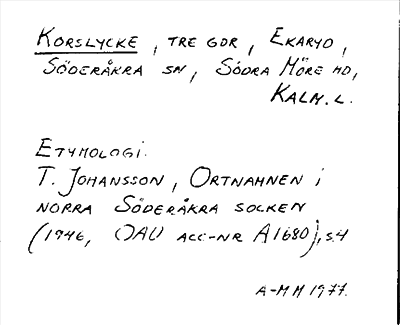 KORSLYCKE, TRE GDR, EKARYD,
SÖDERÅKRA SN, SÖDRA MÖRE HD,
KALM. L.
ETYMOLOGI.
T. JOHANSSON, ORTNAMNEN I
NORRA SÖDERÅKRA SOCKEN
(1946, OAU ACC-NR A1680), s. 4
A-MM 1977.